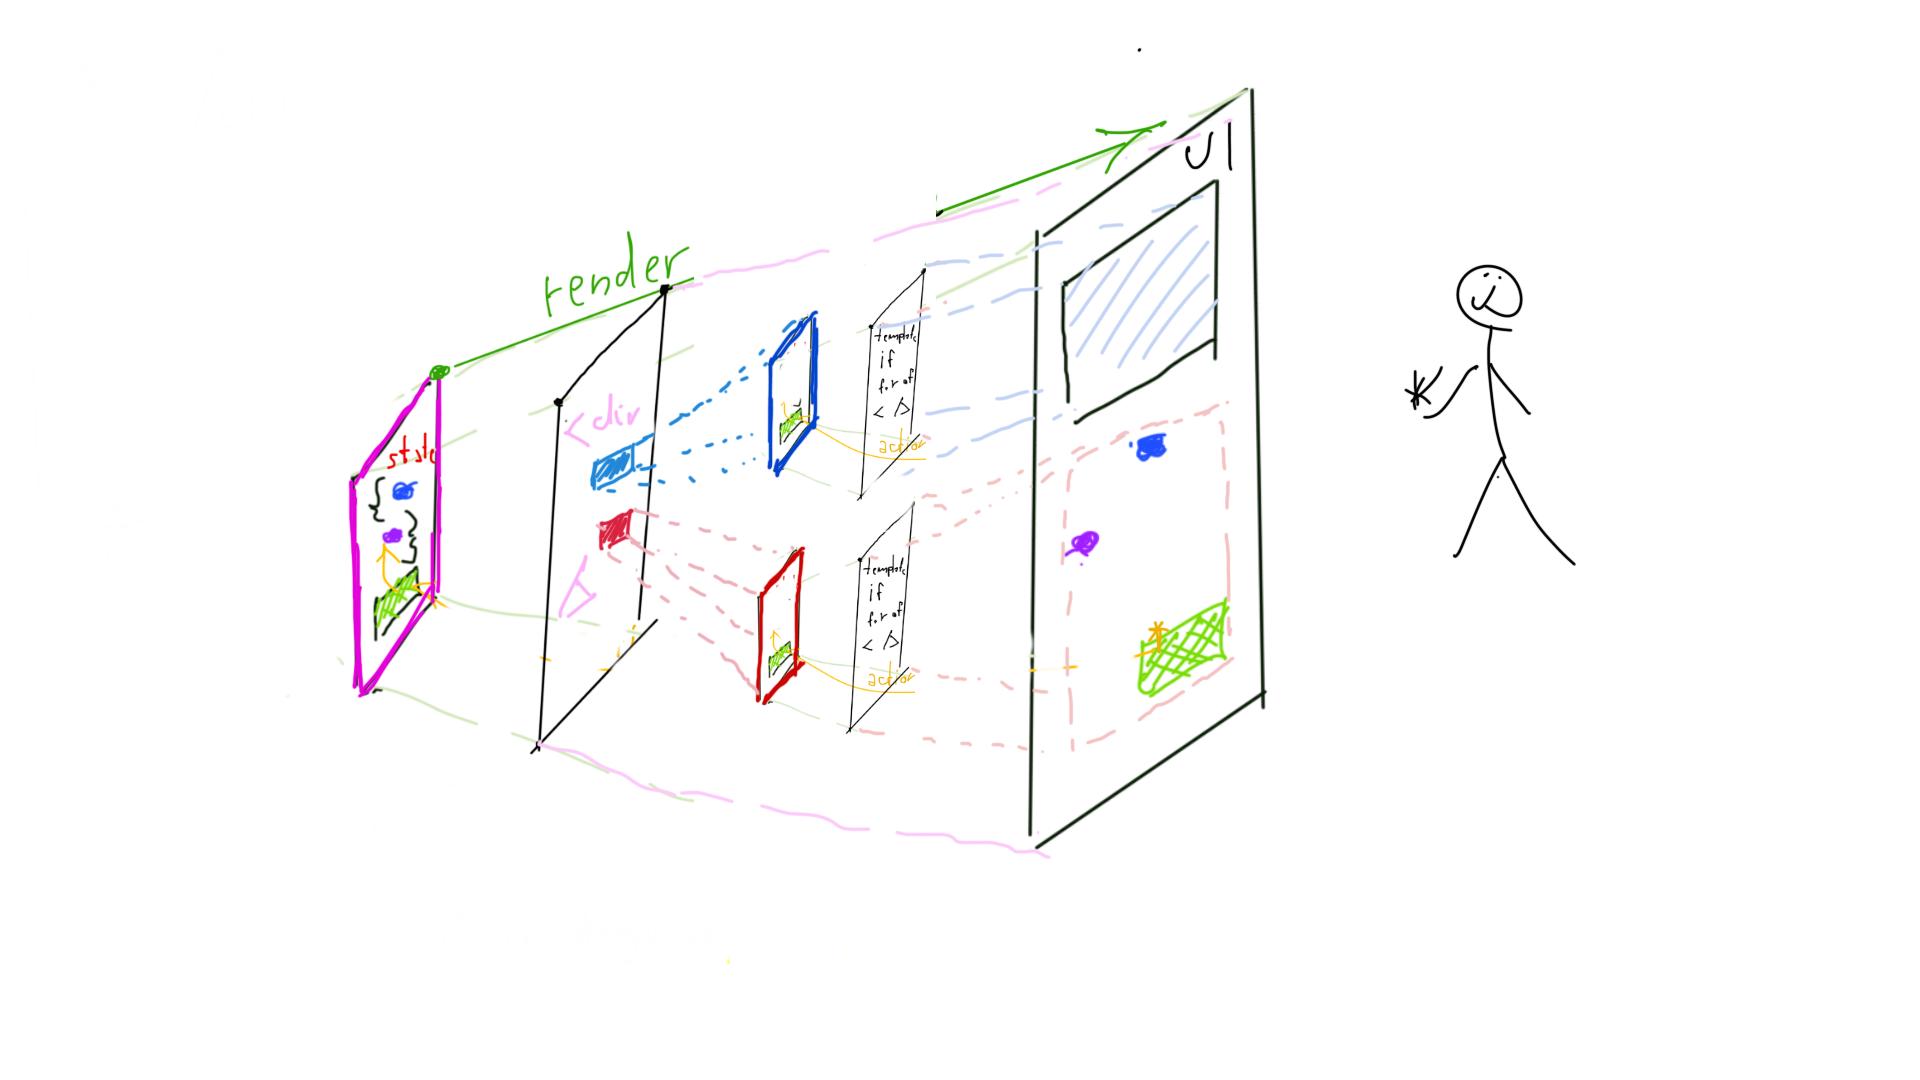 render
UI
state
{
}
<div
template
if
for of
</>
action
template
if
for of
</>
action